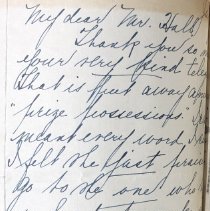 My dear Mr. Hall,
Thank you so
your very kind tele
That is put away a
"prize possessions.
meant every word,
I felt the first
go to the one who